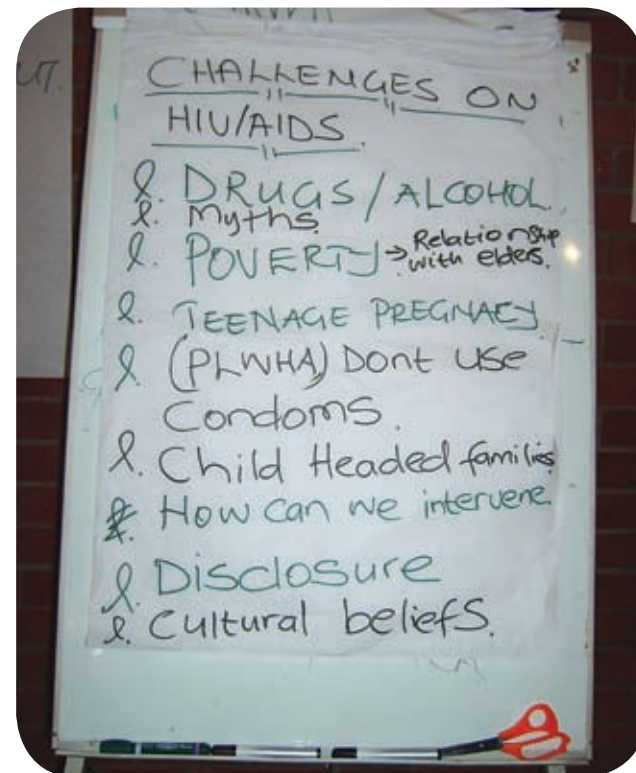 CHALLENGES ON
HIV/AIDS.
DRUGS/ALCOHOL.
Myths.
POVERTY → Relationship
with elders.
TEENAGE PREGNACY.
(PLWHA) Dont use
Condoms.
Child Headed families
How can we intervene.
Disclosure
Cultural beliefs.